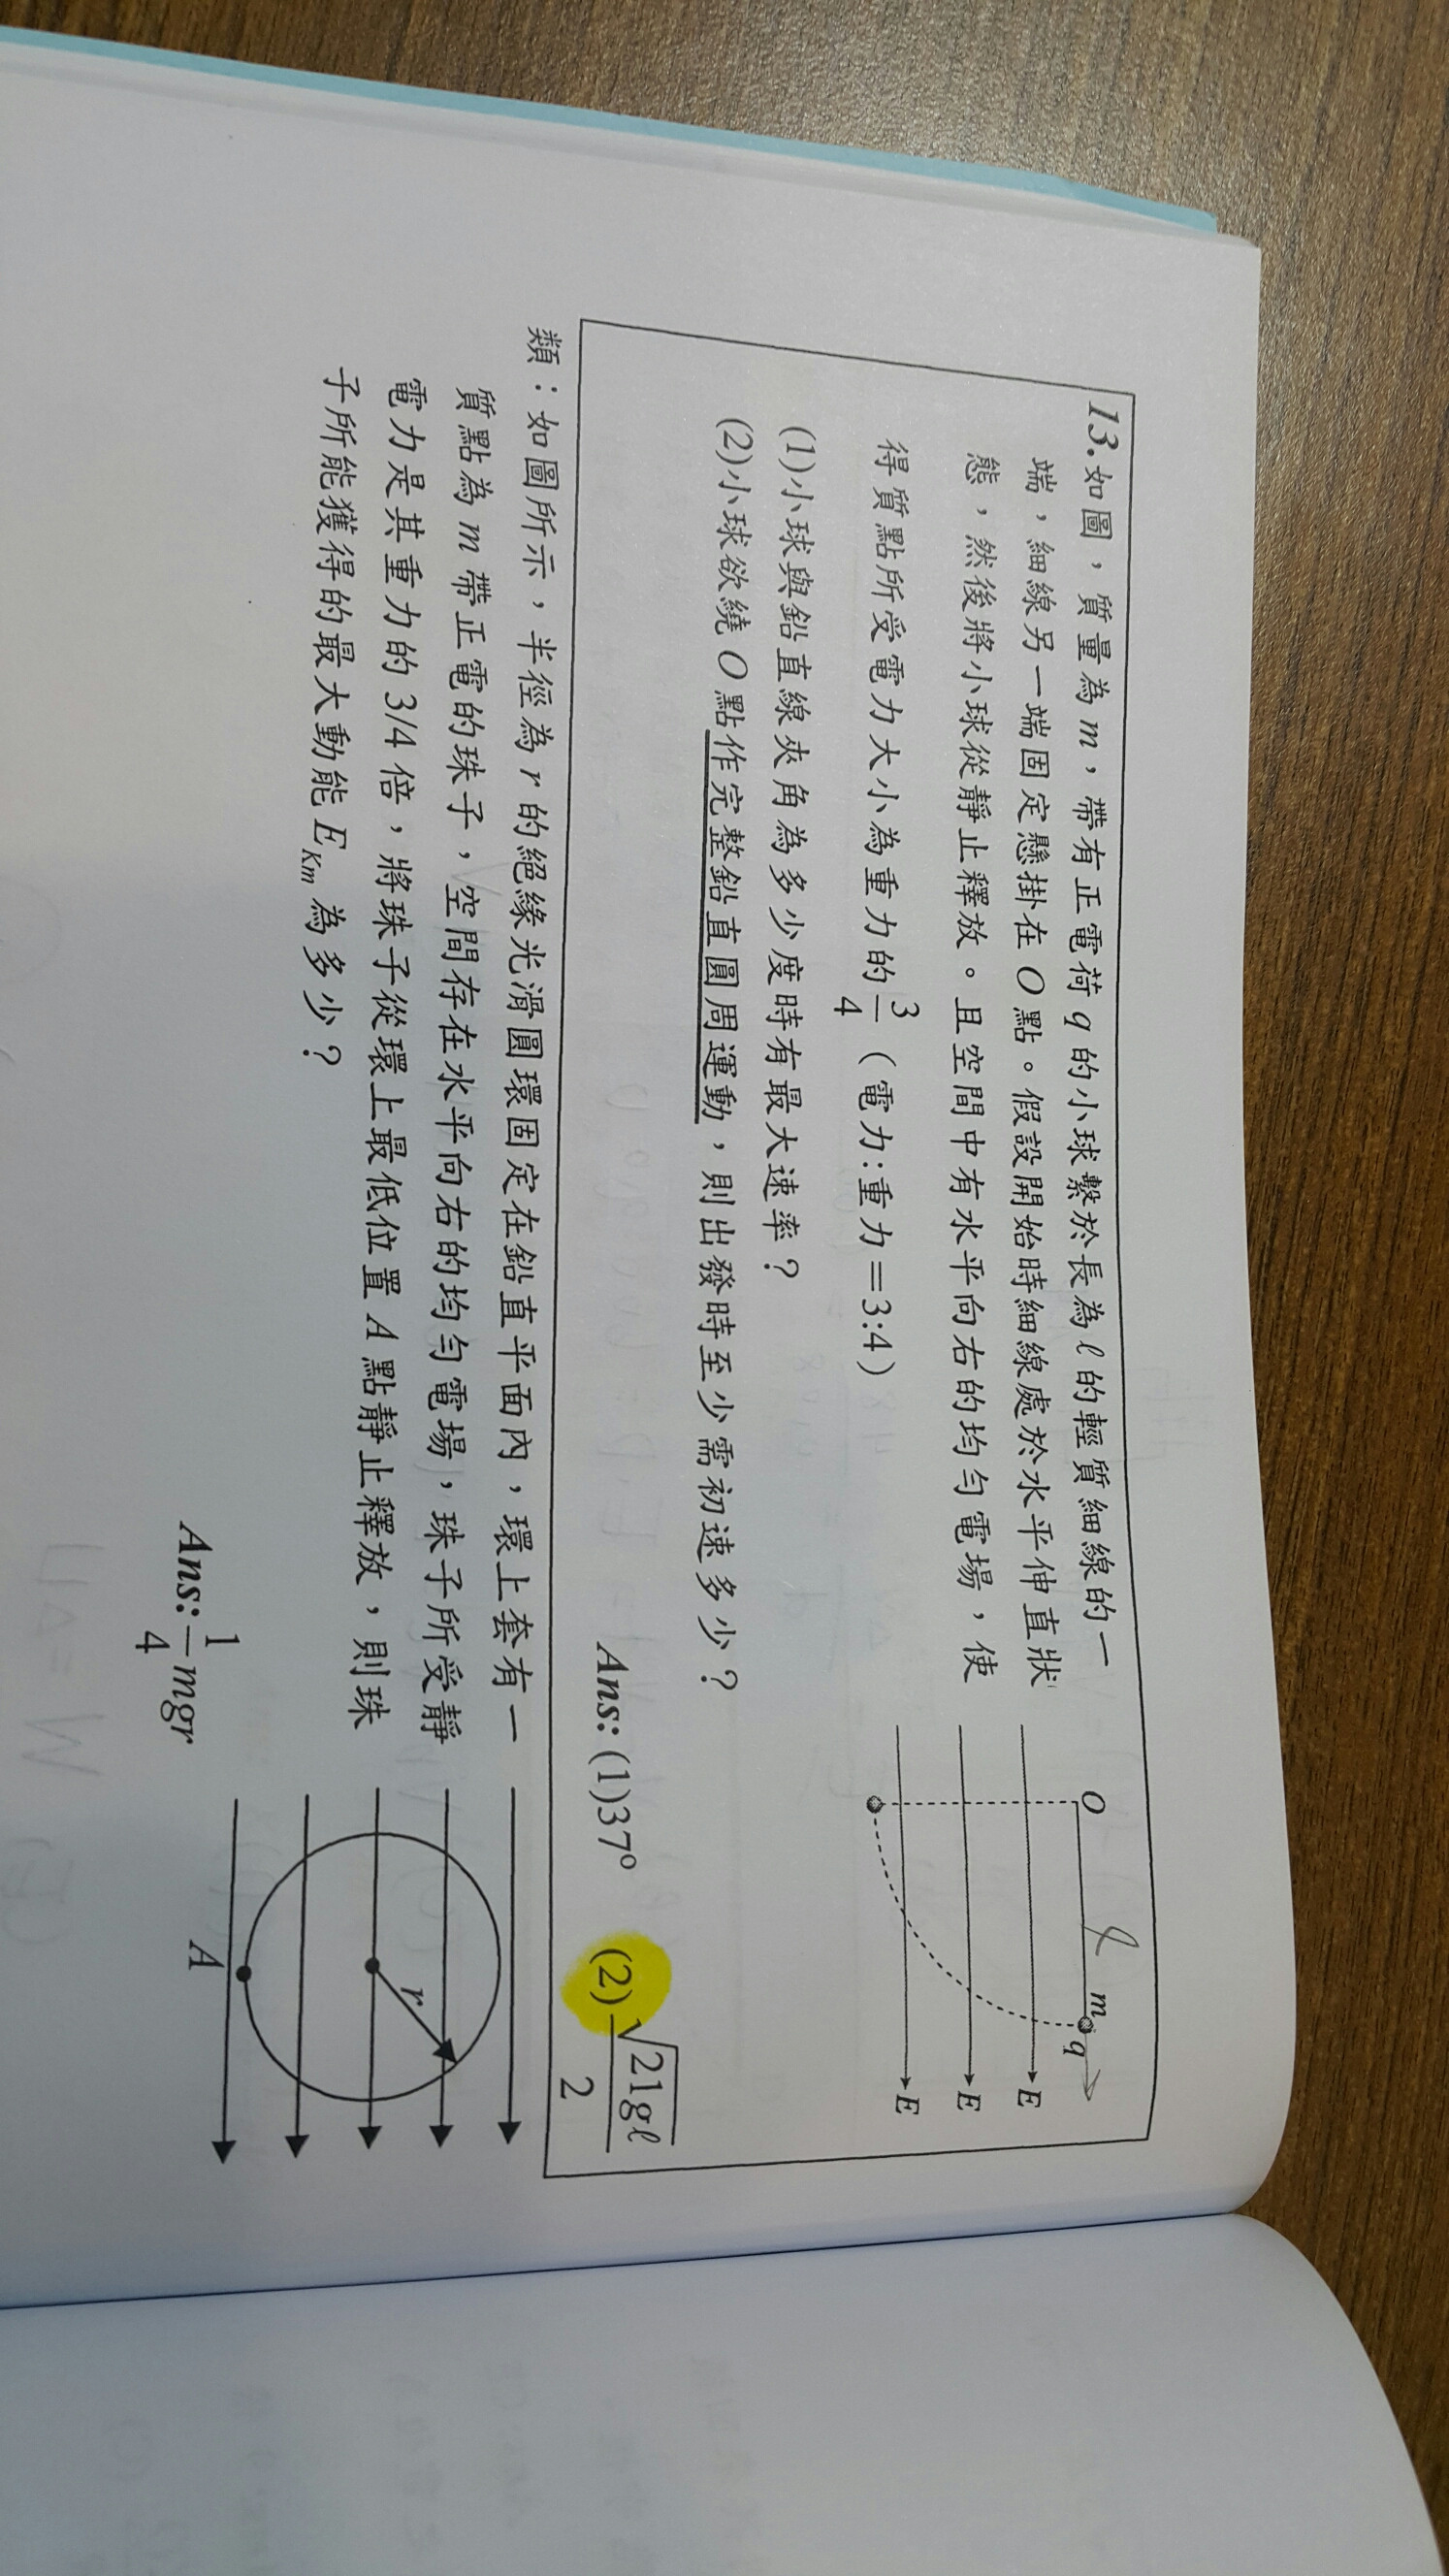 13.如圖，質量為m，帶有正電荷q的小球繫於長為ℓ的輕質細線的一
端，細線另一端固定懸掛在O點。假設開始時細線處於水平伸直狀
態，然後將小球從靜止釋放。且空間中有水平向右的均勻電場，使
得質點所受電力大小為重力的3/4（電力:重力=3:4）
(1)小球與鉛直線夾角為多少度時有最大速率？
(2)小球欲繞O點作完整鉛直圓周運動，則出發時至少需初速多少？
Ans: (1)37° (2)√21gℓ/2
O
ℓ
m
q
E
E
E
類：如圖所示，半徑為r的絕緣光滑圓環固定在鉛直平面內，環上套有一
質點為m帶正電的珠子，空間存在水平向右的均勻電場，珠子所受靜
電力是其重力的3/4倍，將珠子從環上最低位置A點靜止釋放，則珠
子所能獲得的最大動能EKm為多少？
Ans: 1/4 mgr
r
A